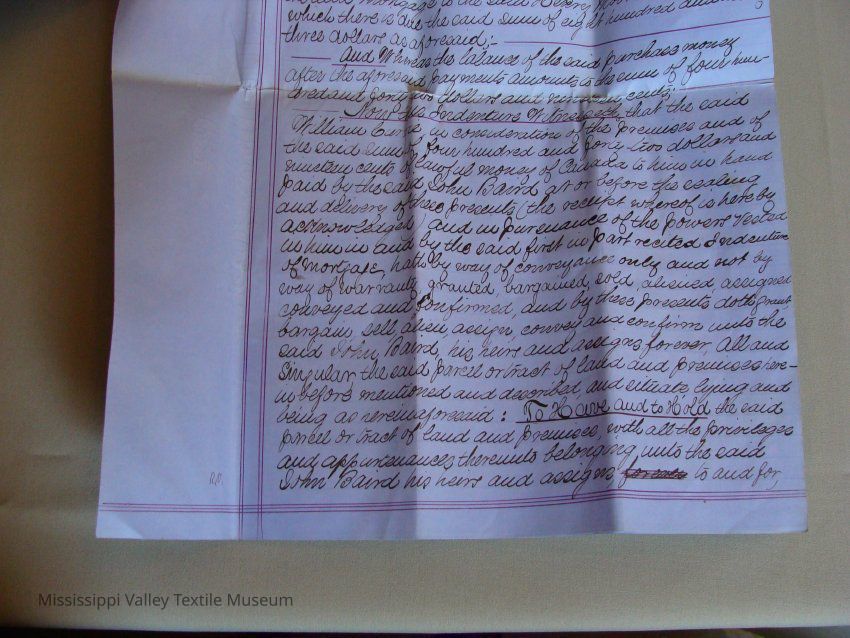 said mortgage to the said Henry
which there is due the said sum of eight hundred and
three dollars as aforesaid:-
And Whereas the balance of the said purchase money
after the aforesaid payments amounts to the sum of four hun-
dred and forty two dollars and nineteen cents:
Now this Indenture Witnesseth that the said
William in consideration of the premises and of
the said sum of four hundred and forty two dollars and
nineteen cents of lawful money of Canada to him in hand
paid by the said John Baird at or before the sealing
and delivery of these presents (the receipt whereof is hereby
acknowledged) and in pursuance of the powers vested
in him in and by the said first in part recited Indenture
of mortgage, hath by way of conveyance only and not by
way of warranty, granted, bargained, sold, aliened, assigned
conveyed and confirmed, and by these presents doth grant
bargain, sell, alien, assign, convey and confirm unto the
said John Baird, his heirs and assigns forever, All and
Singular the said parcel or tract of land and premises here-
in before mentioned and described, and situate lying and
being as hereinaforesaid: To Have and to Hold the said
parcel or tract of land and premises, with all the privileges
and appurtenances thereunto belonging, unto the said
John Baird his heirs and assigns to and for,
Mississippi Valley Textile Museum